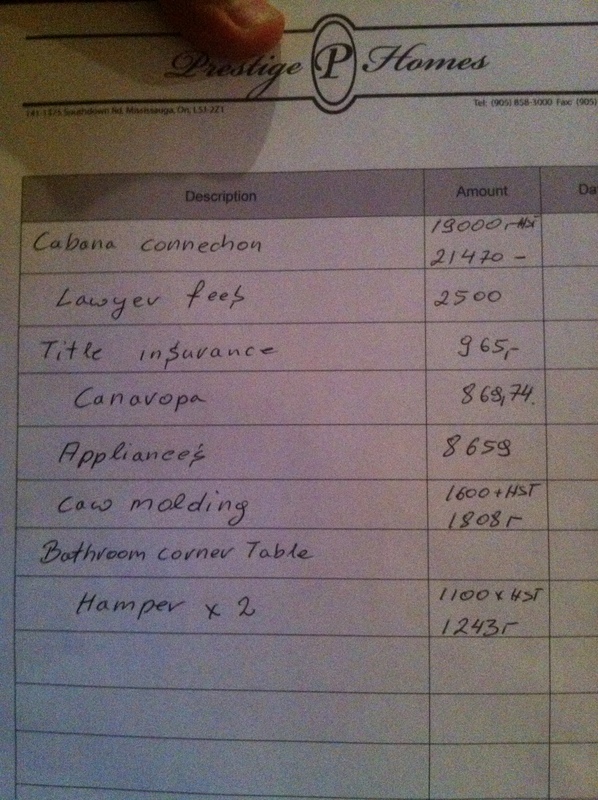 Prestige P Homes
141-1375 Southdown Rd. Mississauga, On, L5J-2Z1
Tel: (905) 858-3000 Fax: (905)
Description Amount Da
Cabana connection 19000,- HST
21470 -
Lawyer fees 2500
Title insurance 965,-
Canavopa 869,74.
Appliances 8659
Caw molding 1600 + HST
1808,-
Bathroom corner Table
Hamper x 2 1100 x HST
1243,-